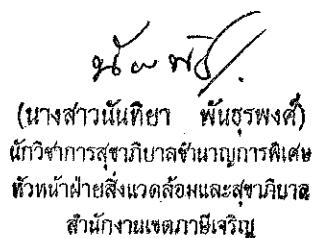 (นางสาวนันทิยา พันธุรพงศ์)
นักวิชาการสุขาภิบาลชำนาญการพิเศษ
หัวหน้าฝ่ายสิ่งแวดล้อมและสุขาภิบาล
สำนักงานเขตภาษีเจริญ